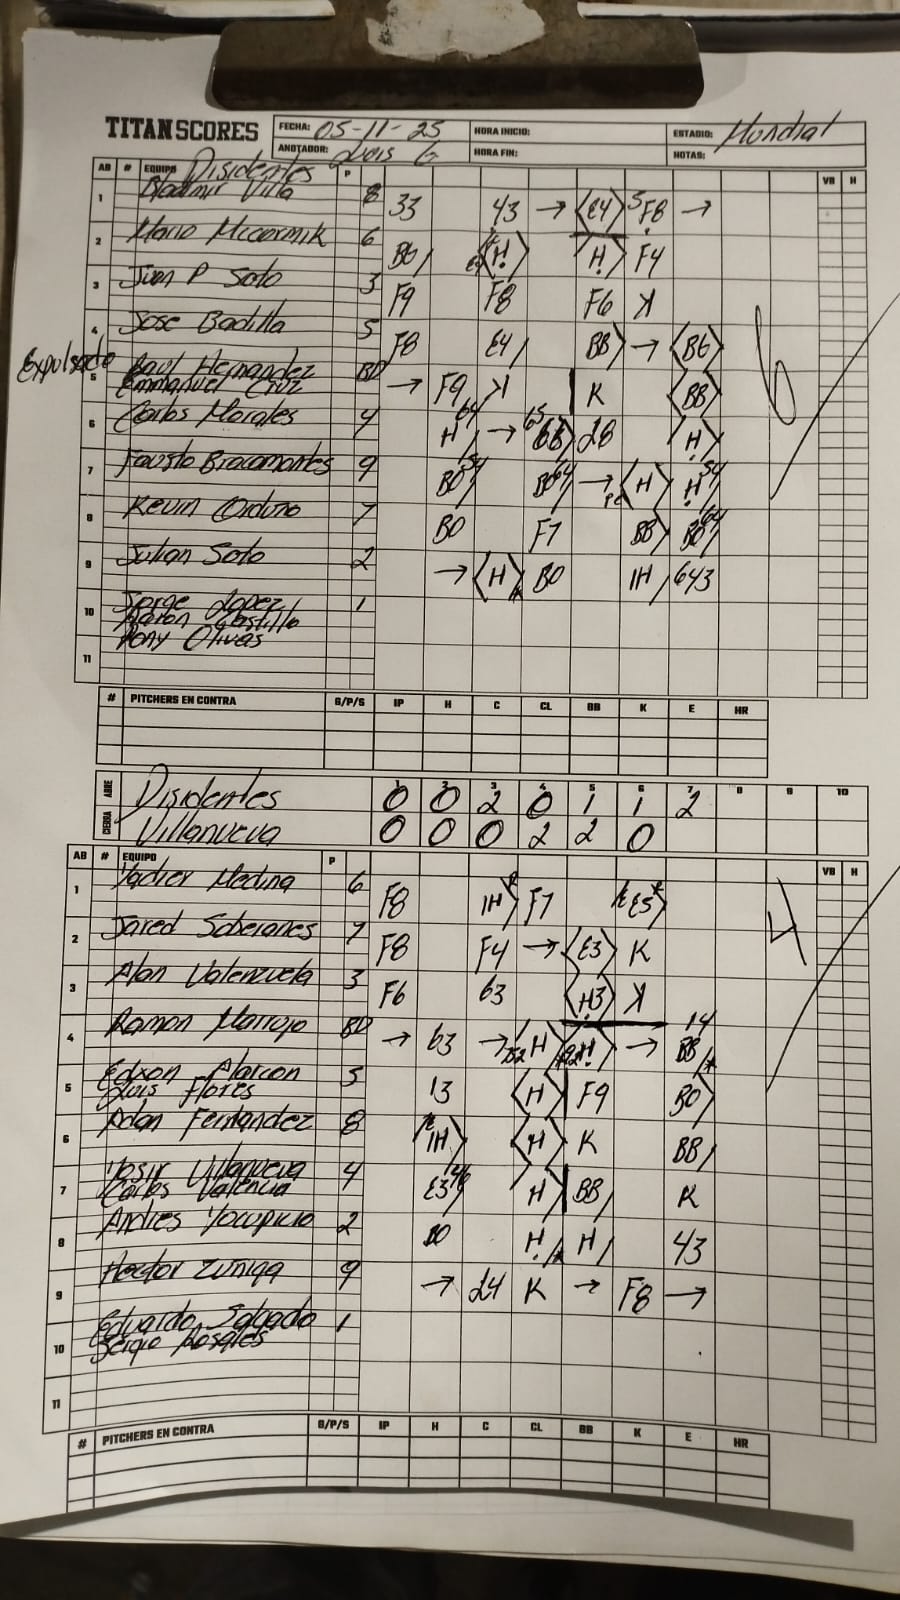 TITAN SCORES
FECHA: 05-11-25 HORA INICIO: ESTADIO: Mundial
ANOTADOR: Luis G HORA FIN: NOTAS:
AB # EQUIPO Disidentes P VB H
1 Bladimir Villa 8 33 43 → E4 5 F8 →
2 Mario Mccormik 6 B6 H H F4
3 Juan P Soto 3 F9 F8 F6 K
4 Jose Badilla 5 F8 E4 BB → B6
Expulsado Raul Hernandez BD
5 Emmanuel Cruz → F9 K K BB
6 Carlos Morales 4 H 64 → 65 BB 28 H
7 Fausto Bracamontes 9 BO 54 BO 64 → H H 54
8 Kevin Orduno 7 BO F7 BB BO 64
9 Julian Soto 2 → H BO 1H 643
Jorge Lopez 1
10 Aaron Castillo
Tony Olivas
11
6
# PITCHERS EN CONTRA G/P/S IP H C CL BB K E HR
1 2 3 4 5 6 7 8 9 10
ABRE Disidentes 0 0 2 0 1 1 2
CIERRA Villanueva 0 0 0 2 2 0
AB # EQUIPO P VB H
1 Yadier Medina 6 F8 1H F7 E5
2 Jared Soberanes 7 F8 F4 → E3 K
3 Alan Valenzuela 3 F6 63 H3 K
4 Ramon Marrojo BD → 63 → H H → 14 BB
Edxon Alarcon 5
5 Luis Flores 13 H F9 BO
6 Adan Fernandez 8 1H H K BB
Yosir Villanueva 4
7 Carlos Valencia E3 46 H BB K
8 Andres Yocupicio 2 BO H H 43
9 Hector Zuniga 9 → 24 K → F8 →
Eduardo Salgado 1
10 Sergio Rosales
11
4
# PITCHERS EN CONTRA G/P/S IP H C CL BB K E HR